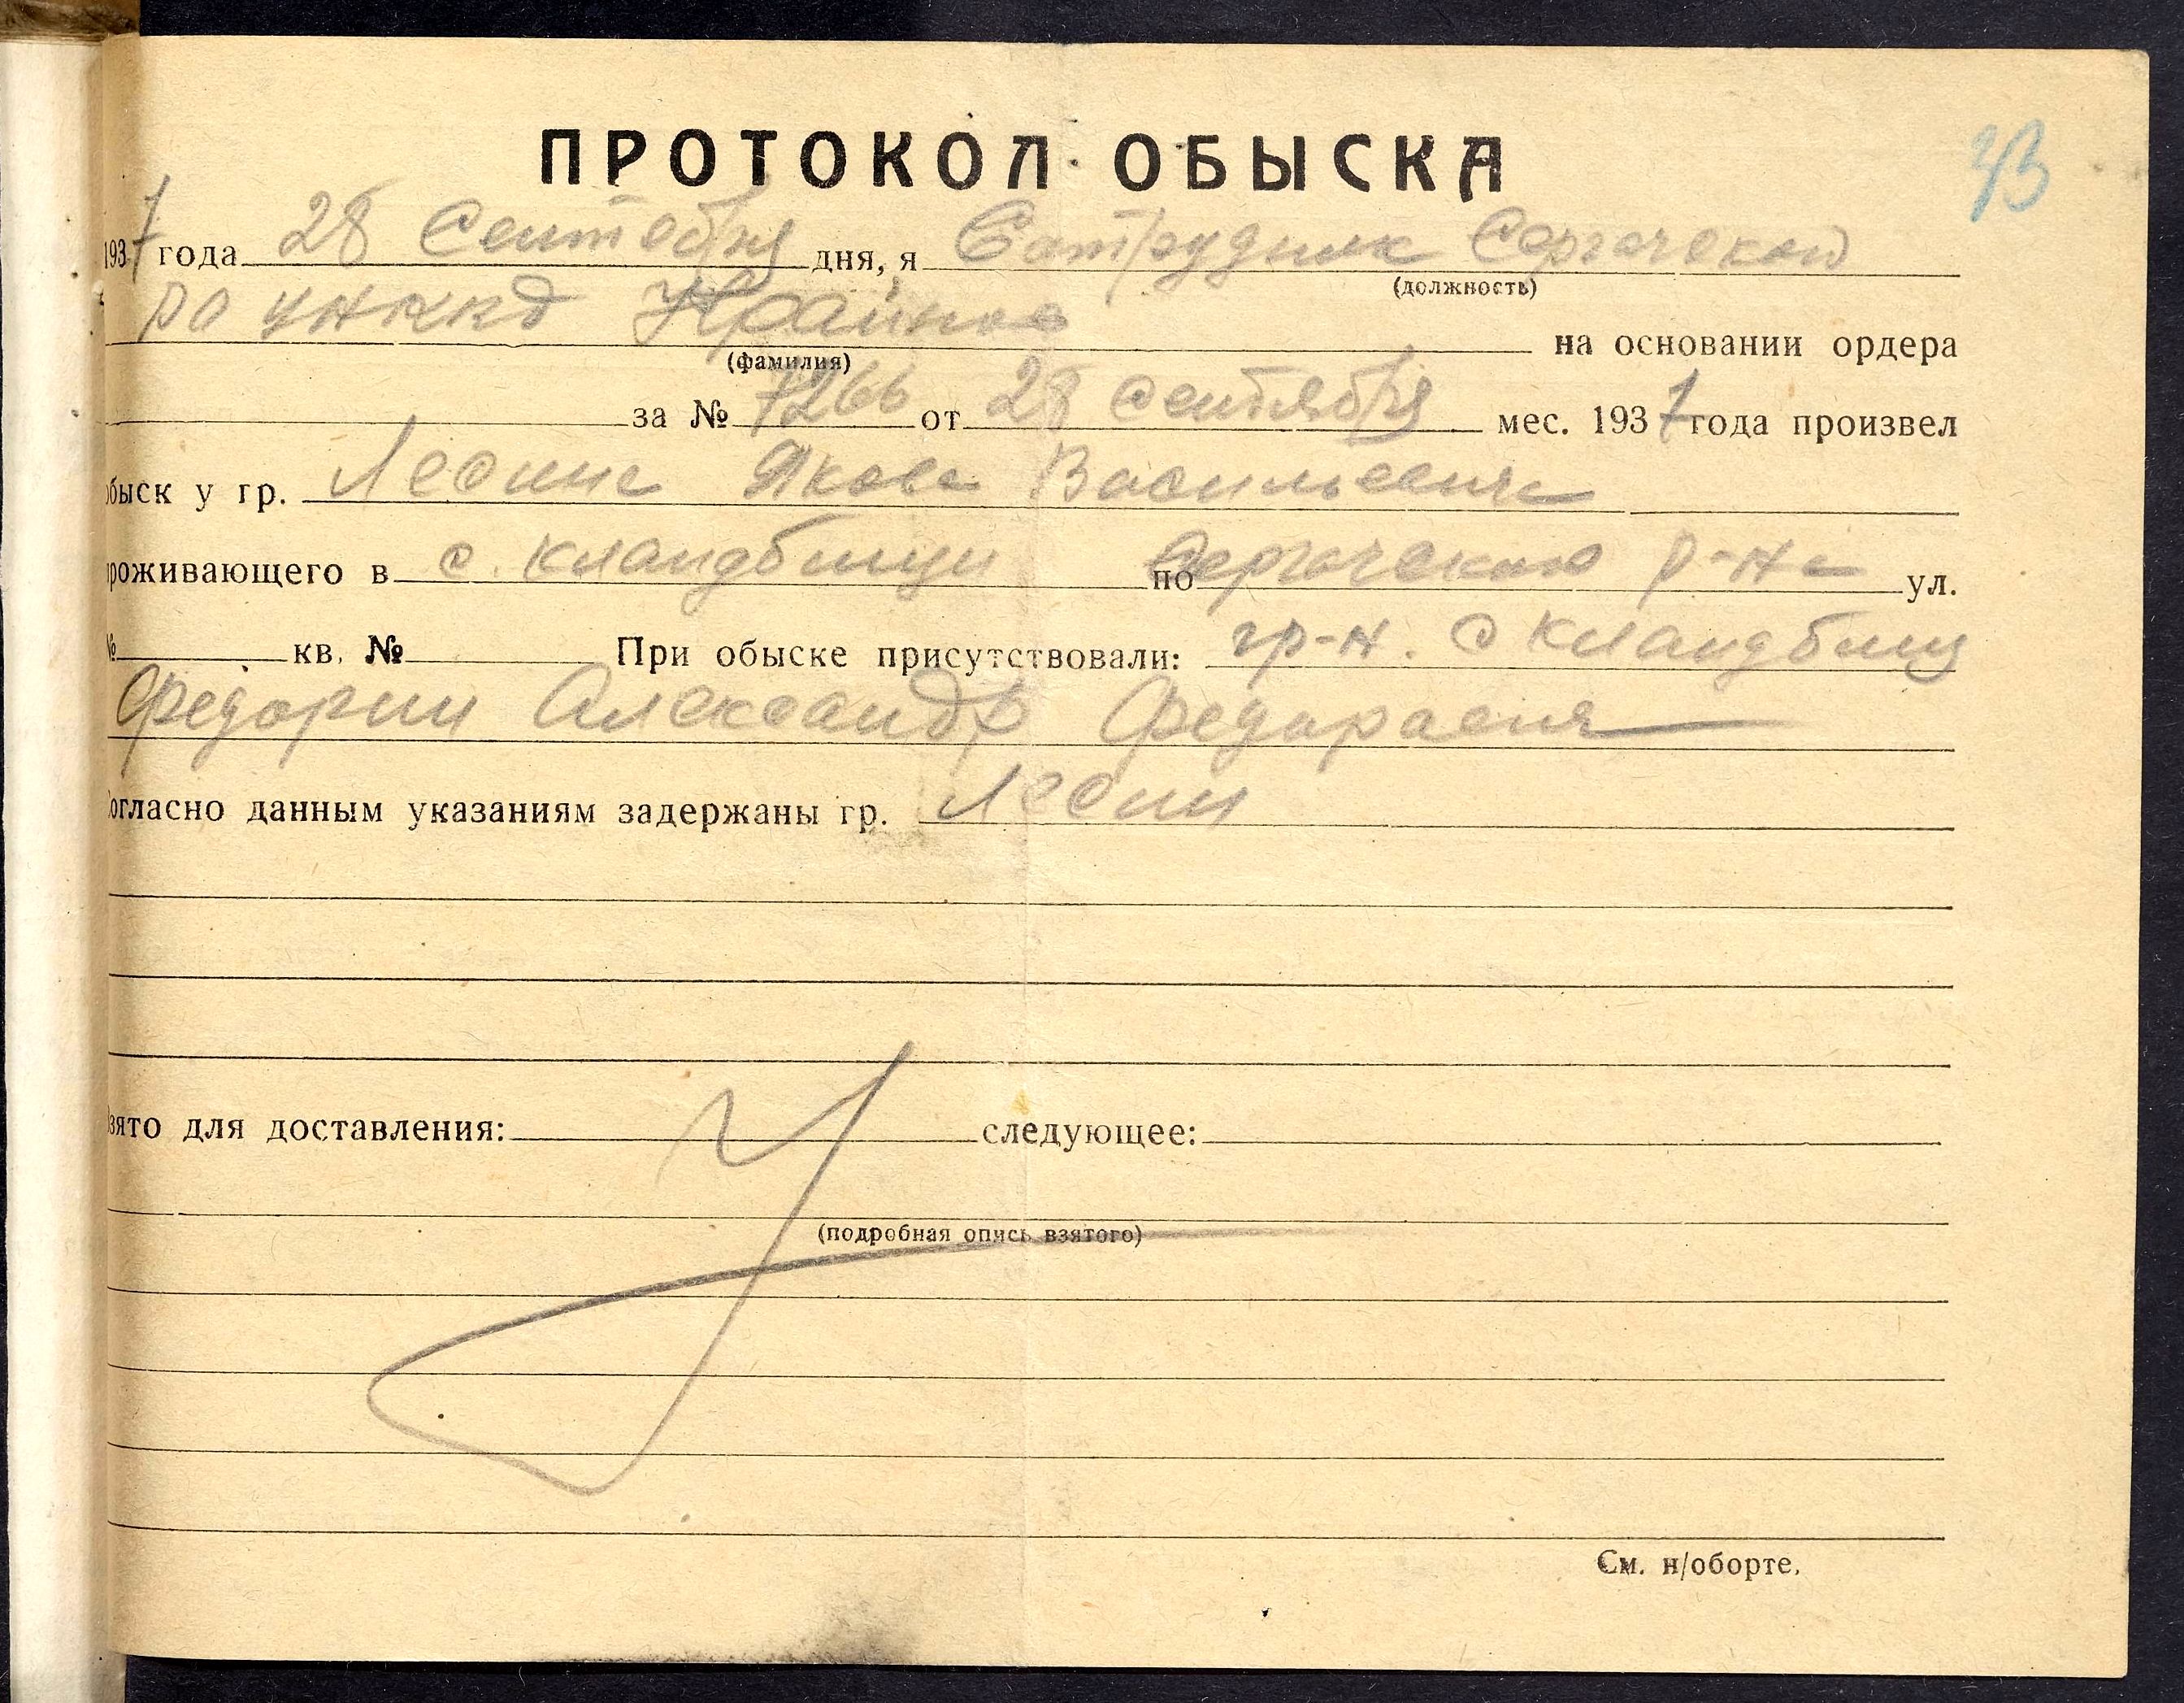 ПРОТОКОЛ ОБЫСКА
33
1937 года 28 Сентебря дня, я Сатрудник Сергачской
(должность)
ро УНККД Крайнов на основании ордера
(фамилия)
за № 7266 от 28 Сентября мес. 1937 года произвел
обыск у гр. Лесина Якова Васильевича
роживающего в с. Кландбищи по Сергачского р-на ул.
№ кв. № При обыске присутствовали: гр-н. с Кландбищ
Федорин Александр Федараеич
Согласно данным указаниям задержаны гр. Лесин
Взято для доставления: следующее:
(подробная опись взятого)
См. н/оборте.